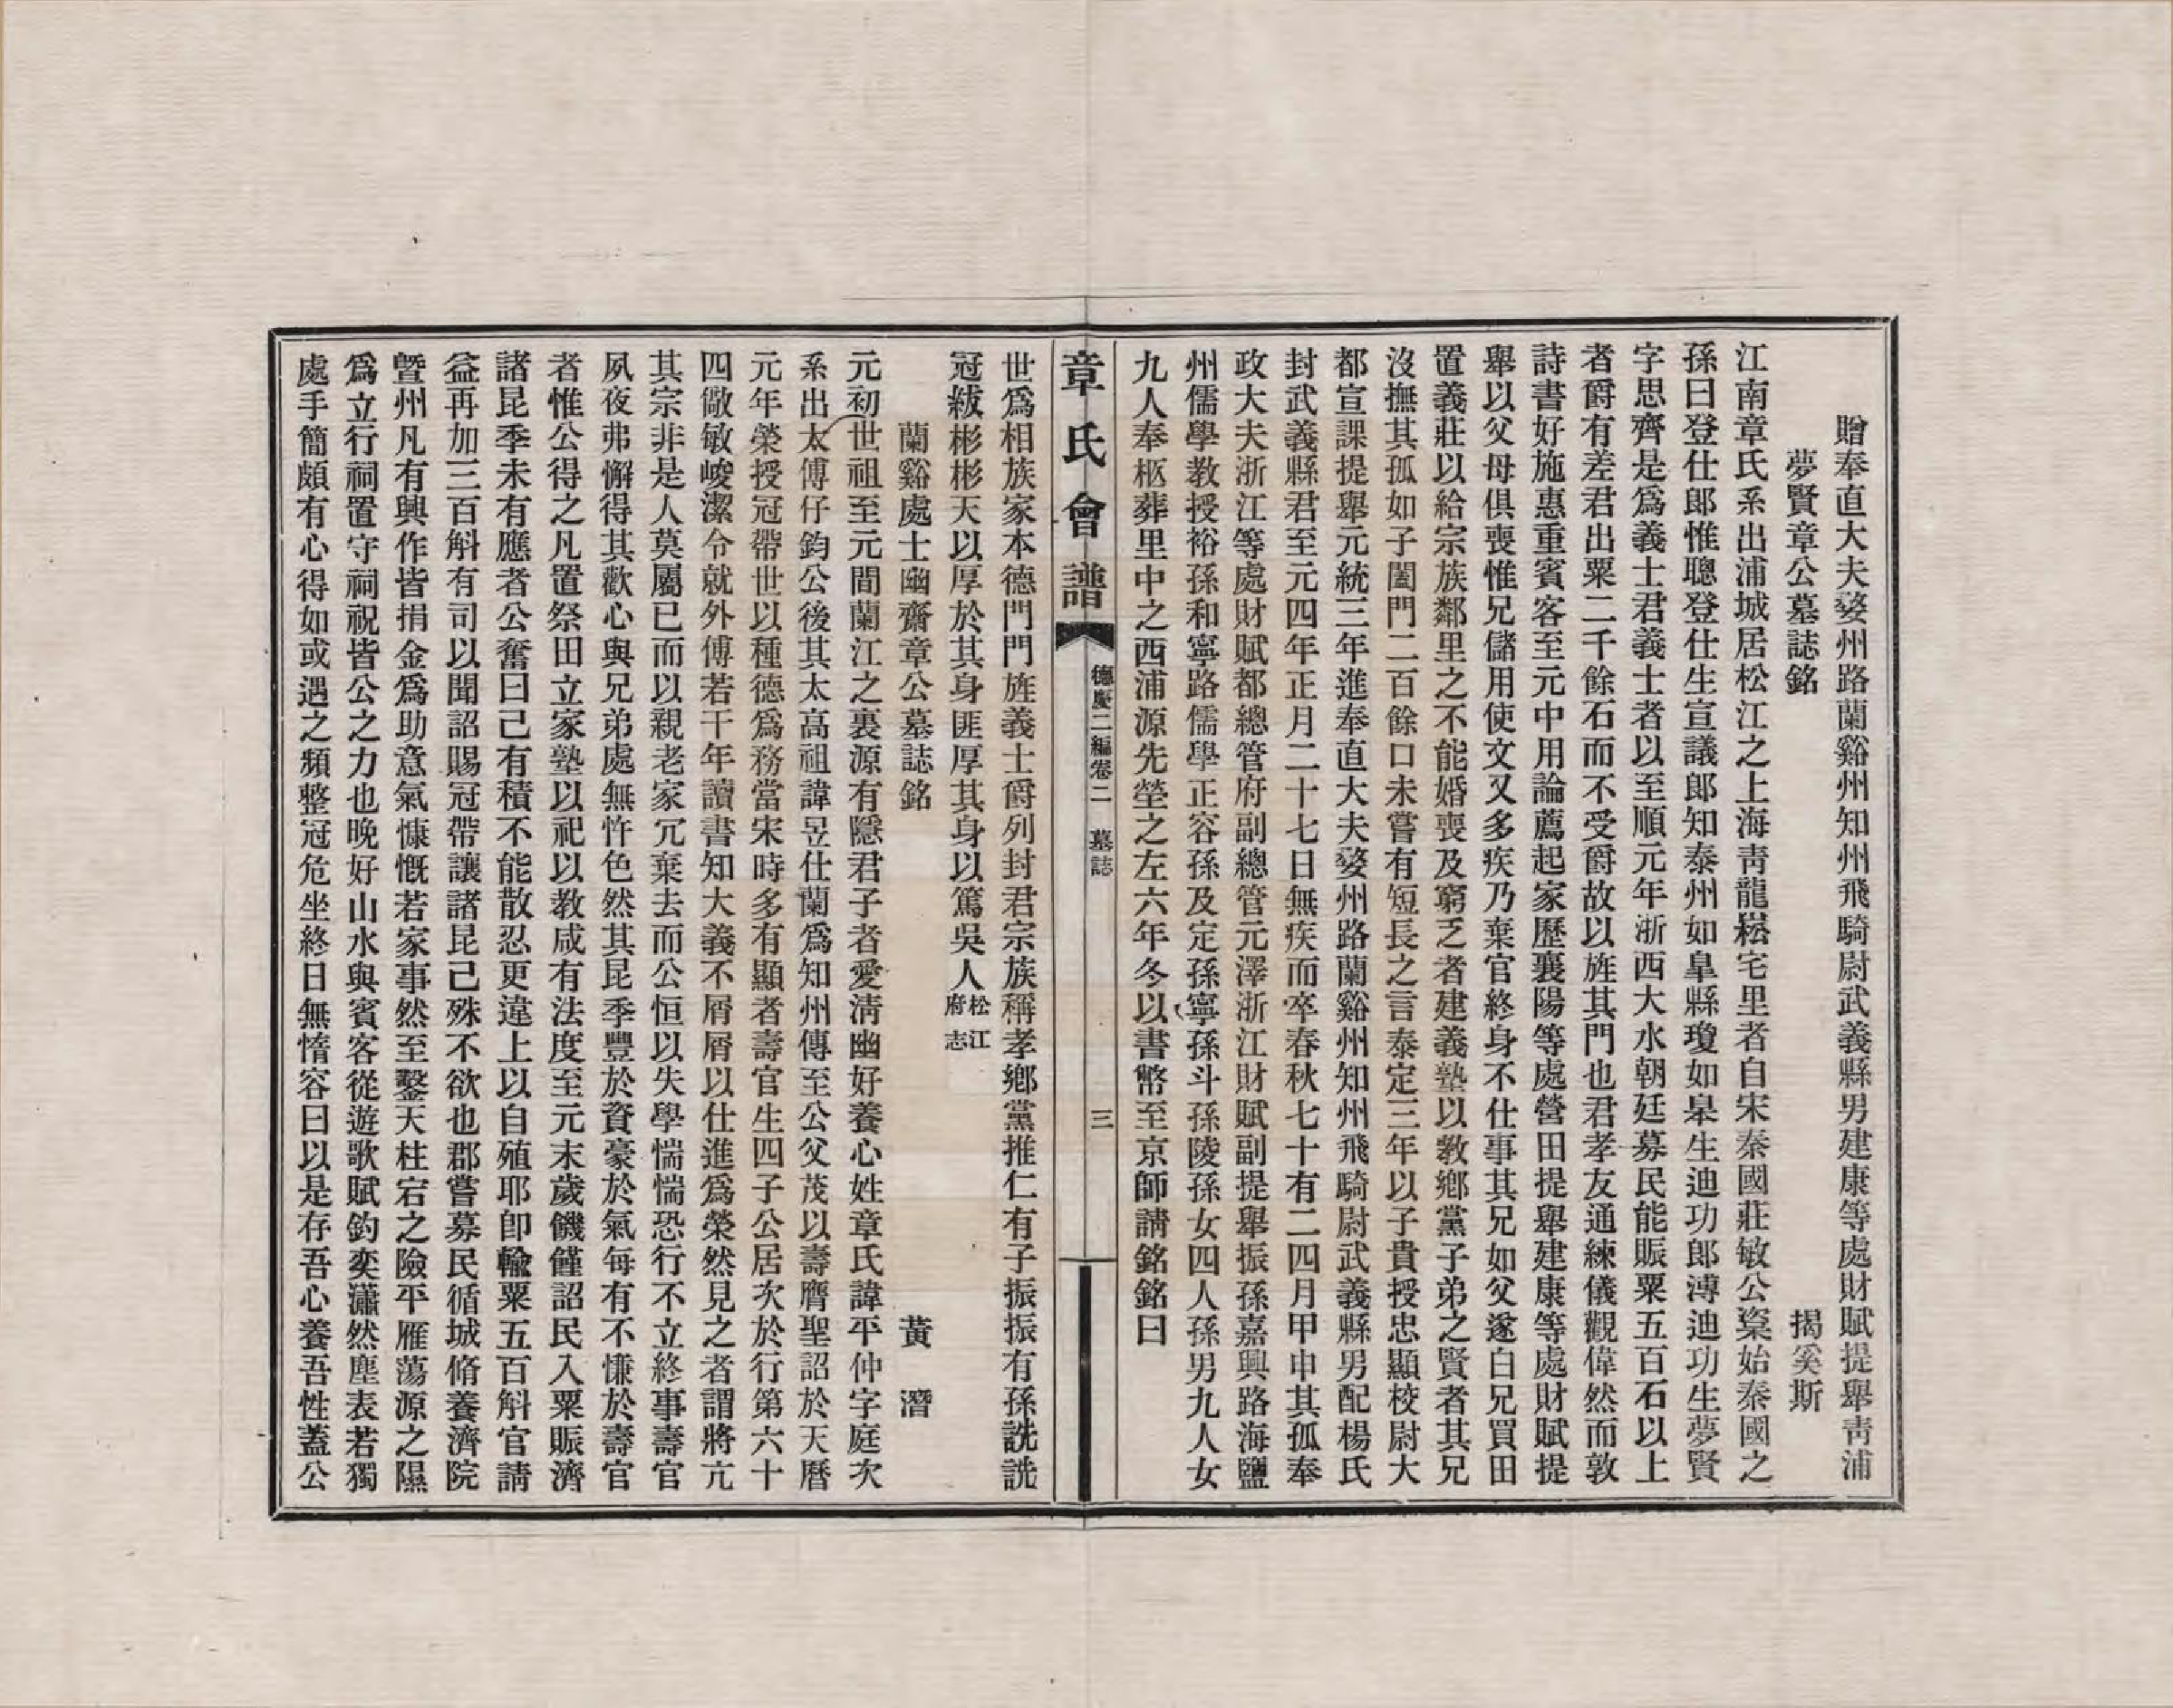 贈奉直大夫婺州路蘭谿州知州飛騎尉武義縣男建康等處財賦提舉青浦
夢賢章公墓誌銘　揭奚斯
江南章氏系出浦城居松江之上海青龍崧宅里者自宋秦國莊敏公楶始秦國之
孫曰登仕郎惟聰登仕生宣議郎知泰州如臯縣瓊如皋生迪功郎溥迪功生夢賢
字思齊是爲義士君義士者以至順元年浙西大水朝廷募民能賑粟五百石以上
者爵有差君出粟二千餘石而不受爵故以旌其門也君孝友通練儀觀偉然而敦
詩書好施惠重賓客至元中用論薦起家歷襄陽等處營田提舉建康等處財賦提
舉以父母俱喪惟兄儲用使文又多疾乃棄官終身不仕事其兄如父遂白兄買田
置義莊以給宗族鄰里之不能婚喪及窮乏者建義塾以教鄉黨子弟之賢者其兄
沒撫其孤如子闔門二百餘口未嘗有短長之言泰定三年以子貴授忠顯校尉大
都宣課提舉元統三年進奉直大夫婺州路蘭谿州知州飛騎尉武義縣男配楊氏
封武義縣君至元四年正月二十七日無疾而卒春秋七十有二四月甲申其孤奉
政大夫浙江等處財賦都總管府副總管元澤浙江財賦副提舉振孫嘉興路海鹽
州儒學教授裕孫和寧路儒學正容孫及定孫寧孫斗孫陵孫女四人孫男九人女
九人奉柩葬里中之西浦源先塋之左六年冬以書幣至京師請銘銘曰
章氏會譜　德慶二編卷二　墓誌　三
世爲相族家本德門門旌義士爵列封君宗族稱孝鄉黨推仁有子振振有孫詵詵
冠紱彬彬天以厚於其身匪厚其身以篤吳人松江府志
蘭谿處士幽齋章公墓誌銘　黃　溍
元初世祖至元間蘭江之裏源有隱君子者愛清幽好養心姓章氏諱平仲字庭次
系出太傅仔鈞公後其太高祖諱昱仕蘭爲知州傳至公父茂以壽膺聖詔於天曆
元年榮授冠帶世以種德爲務當宋時多有顯者壽官生四子公居次於行第六十
四儆敏峻潔令就外傅若干年讀書知大義不屑屑以仕進爲榮然見之者謂將亢
其宗非是人莫屬已而以親老家冗棄去而公恒以失學惴惴恐行不立終事壽官
夙夜弗懈得其歡心與兄弟處無忤色然其昆季豐於資豪於氣每有不慊於壽官
者惟公得之凡置祭田立家塾以祀以教咸有法度至元末歲饑饉詔民入粟賑濟
諸昆季未有應者公奮曰己有積不能散忍更違上以自殖耶卽輸粟五百斛官請
益再加三百斛有司以聞詔賜冠帶讓諸昆己殊不欲也郡嘗募民循城脩養濟院
暨州凡有興作皆捐金爲助意氣慷慨若家事然至鑿天柱宕之險平雁蕩源之隰
爲立行祠置守祠祝皆公之力也晚好山水與賓客從遊歌賦釣奕瀟然塵表若獨
處手簡頗有心得如或遇之頻整冠危坐終日無惰容曰以是存吾心養吾性蓋公